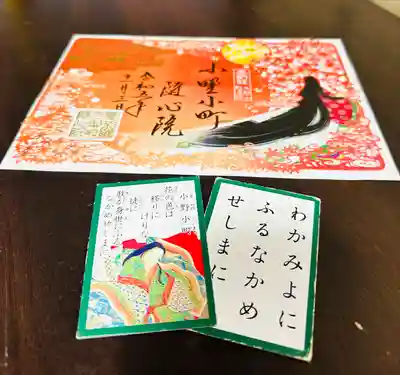 小野小町
随心院
令和五年
十一月三日
小野小町
花の色は
移りに
けりな
徒に
我が身世にふる
ながめせしまに
わかみよに
ふるなかめ
せしまに